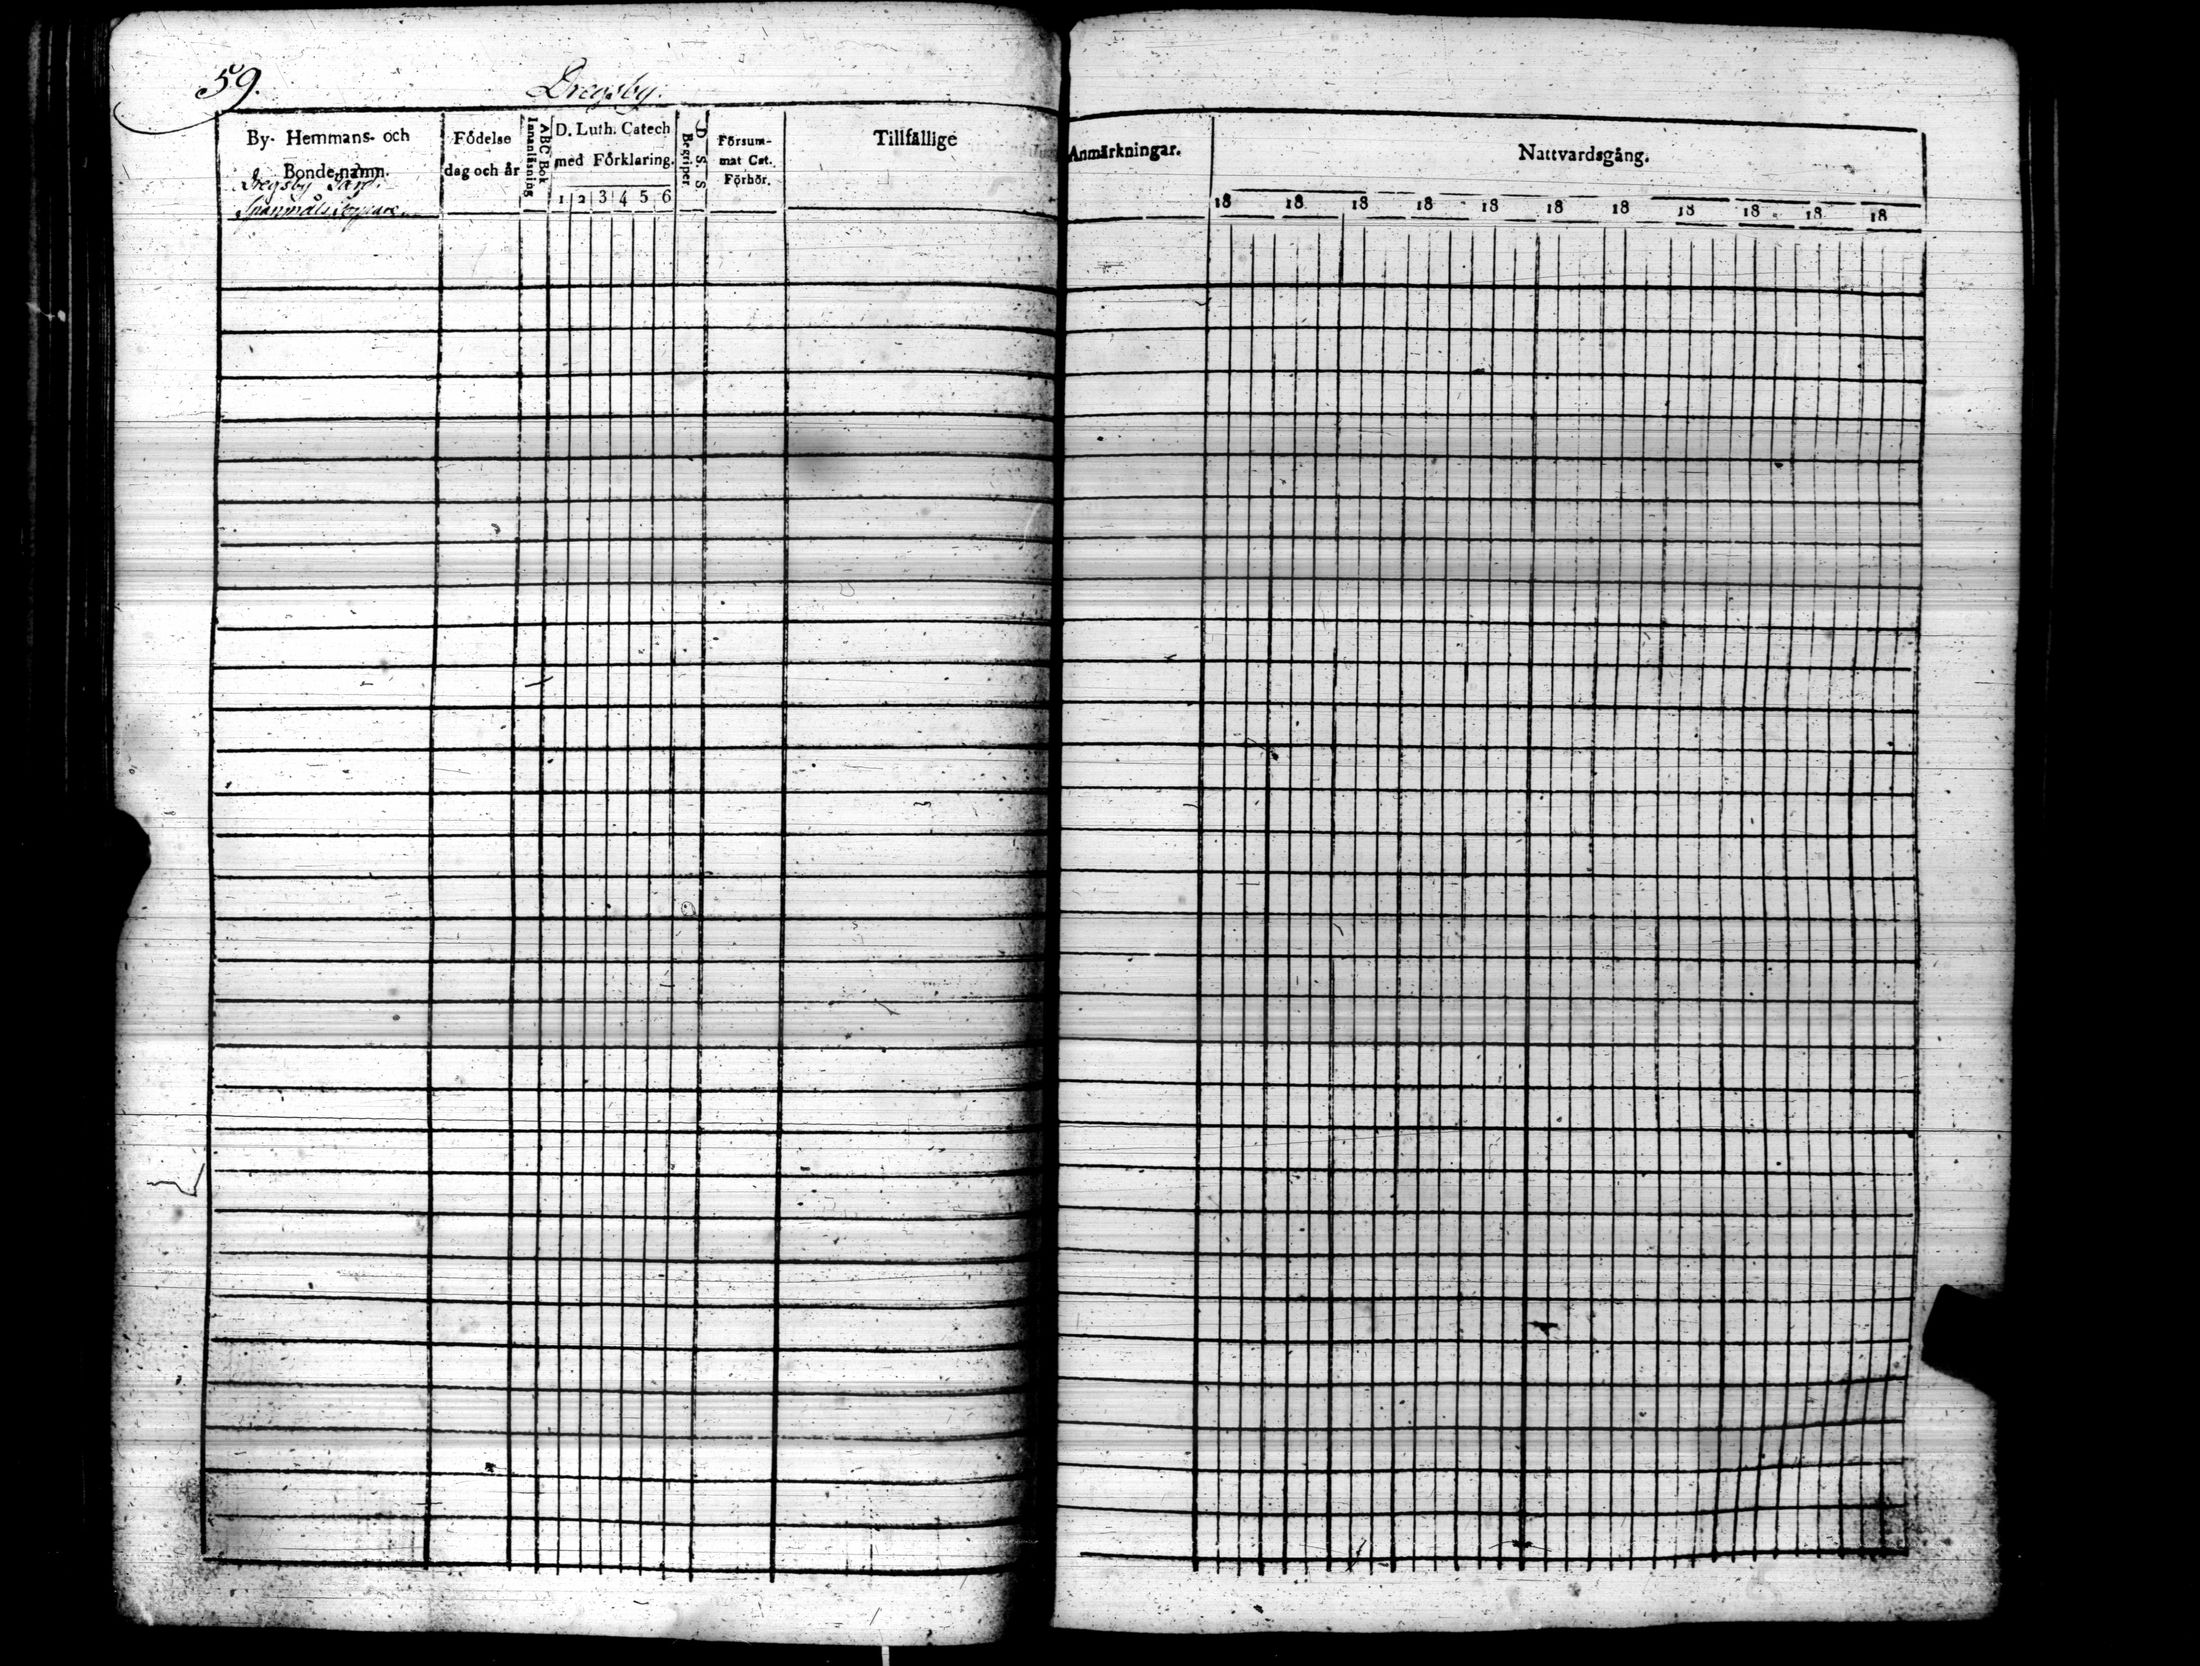 59.
Dregsby.
By- Hemmans- och
Bondenamn.
Dregsby Land.
Födelse
dag och år
ABC Bok
Innanläsning
D. Luth. Catech
med Förklaring.
1 2 3 4 5 6
D. S. S.
Begriper
Försum-
mat Cat.
Förhör.
Tillfällige
Anmärkningar.
Nattvardsgång.
18 18 18 18 18 18 18 18 18 18 18